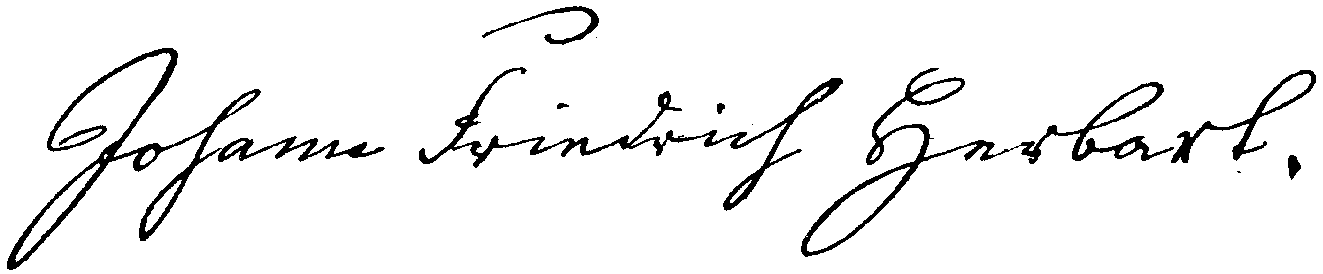 Johann Friedrich Herbart.